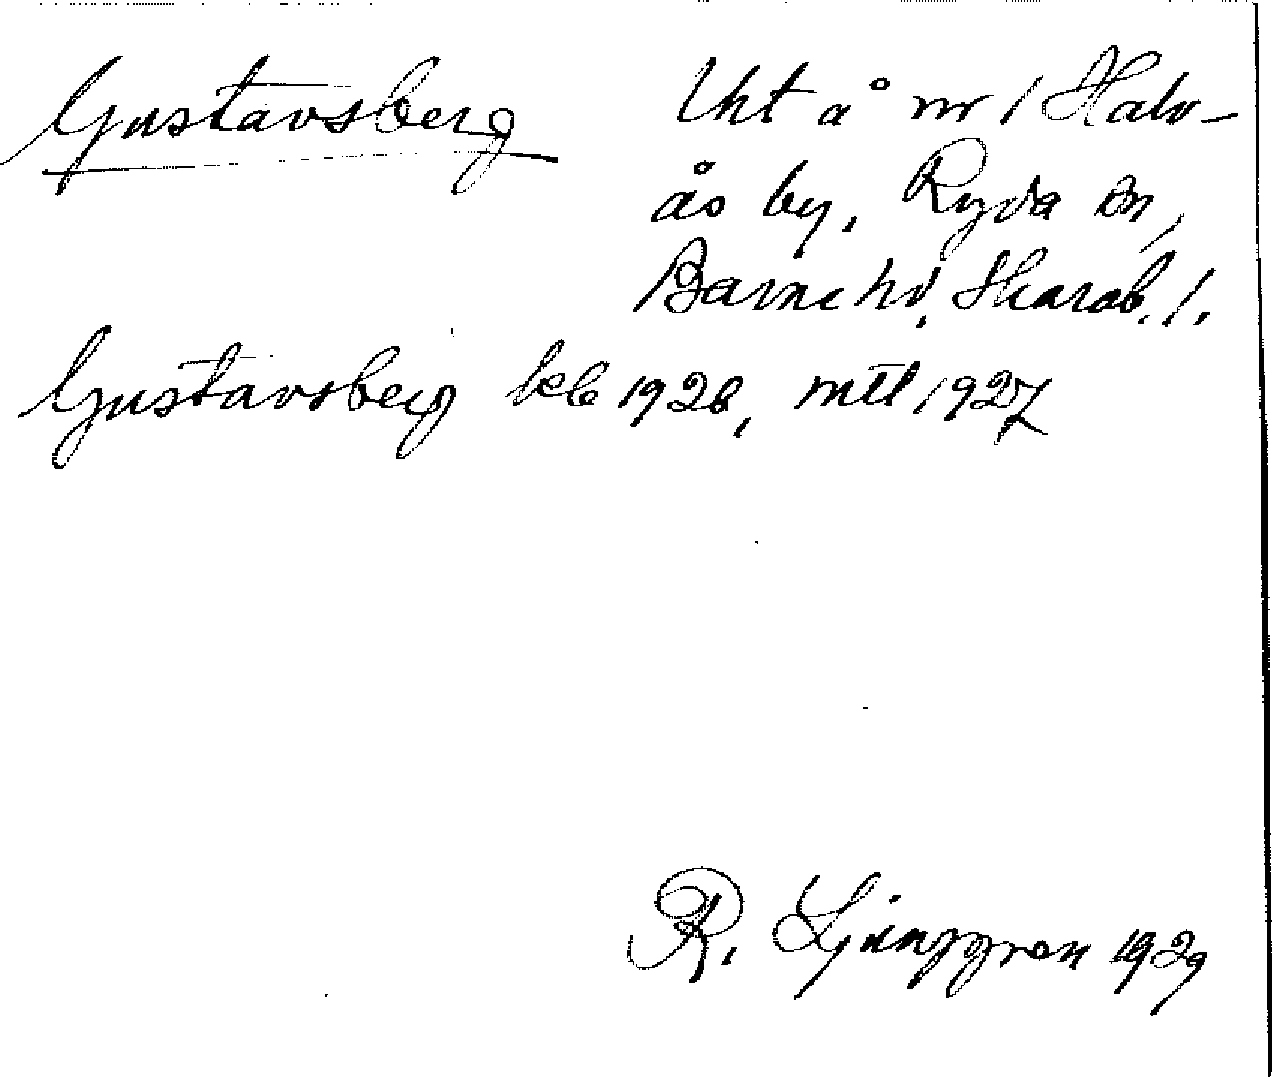 Gustavsberg
Uht å nr 1 Halv-
ås by, Ryda sn,
Barne hd, Skarab. l.
Gustavsberg kb 1926, mtl 1927
R. Ljunggren 1929